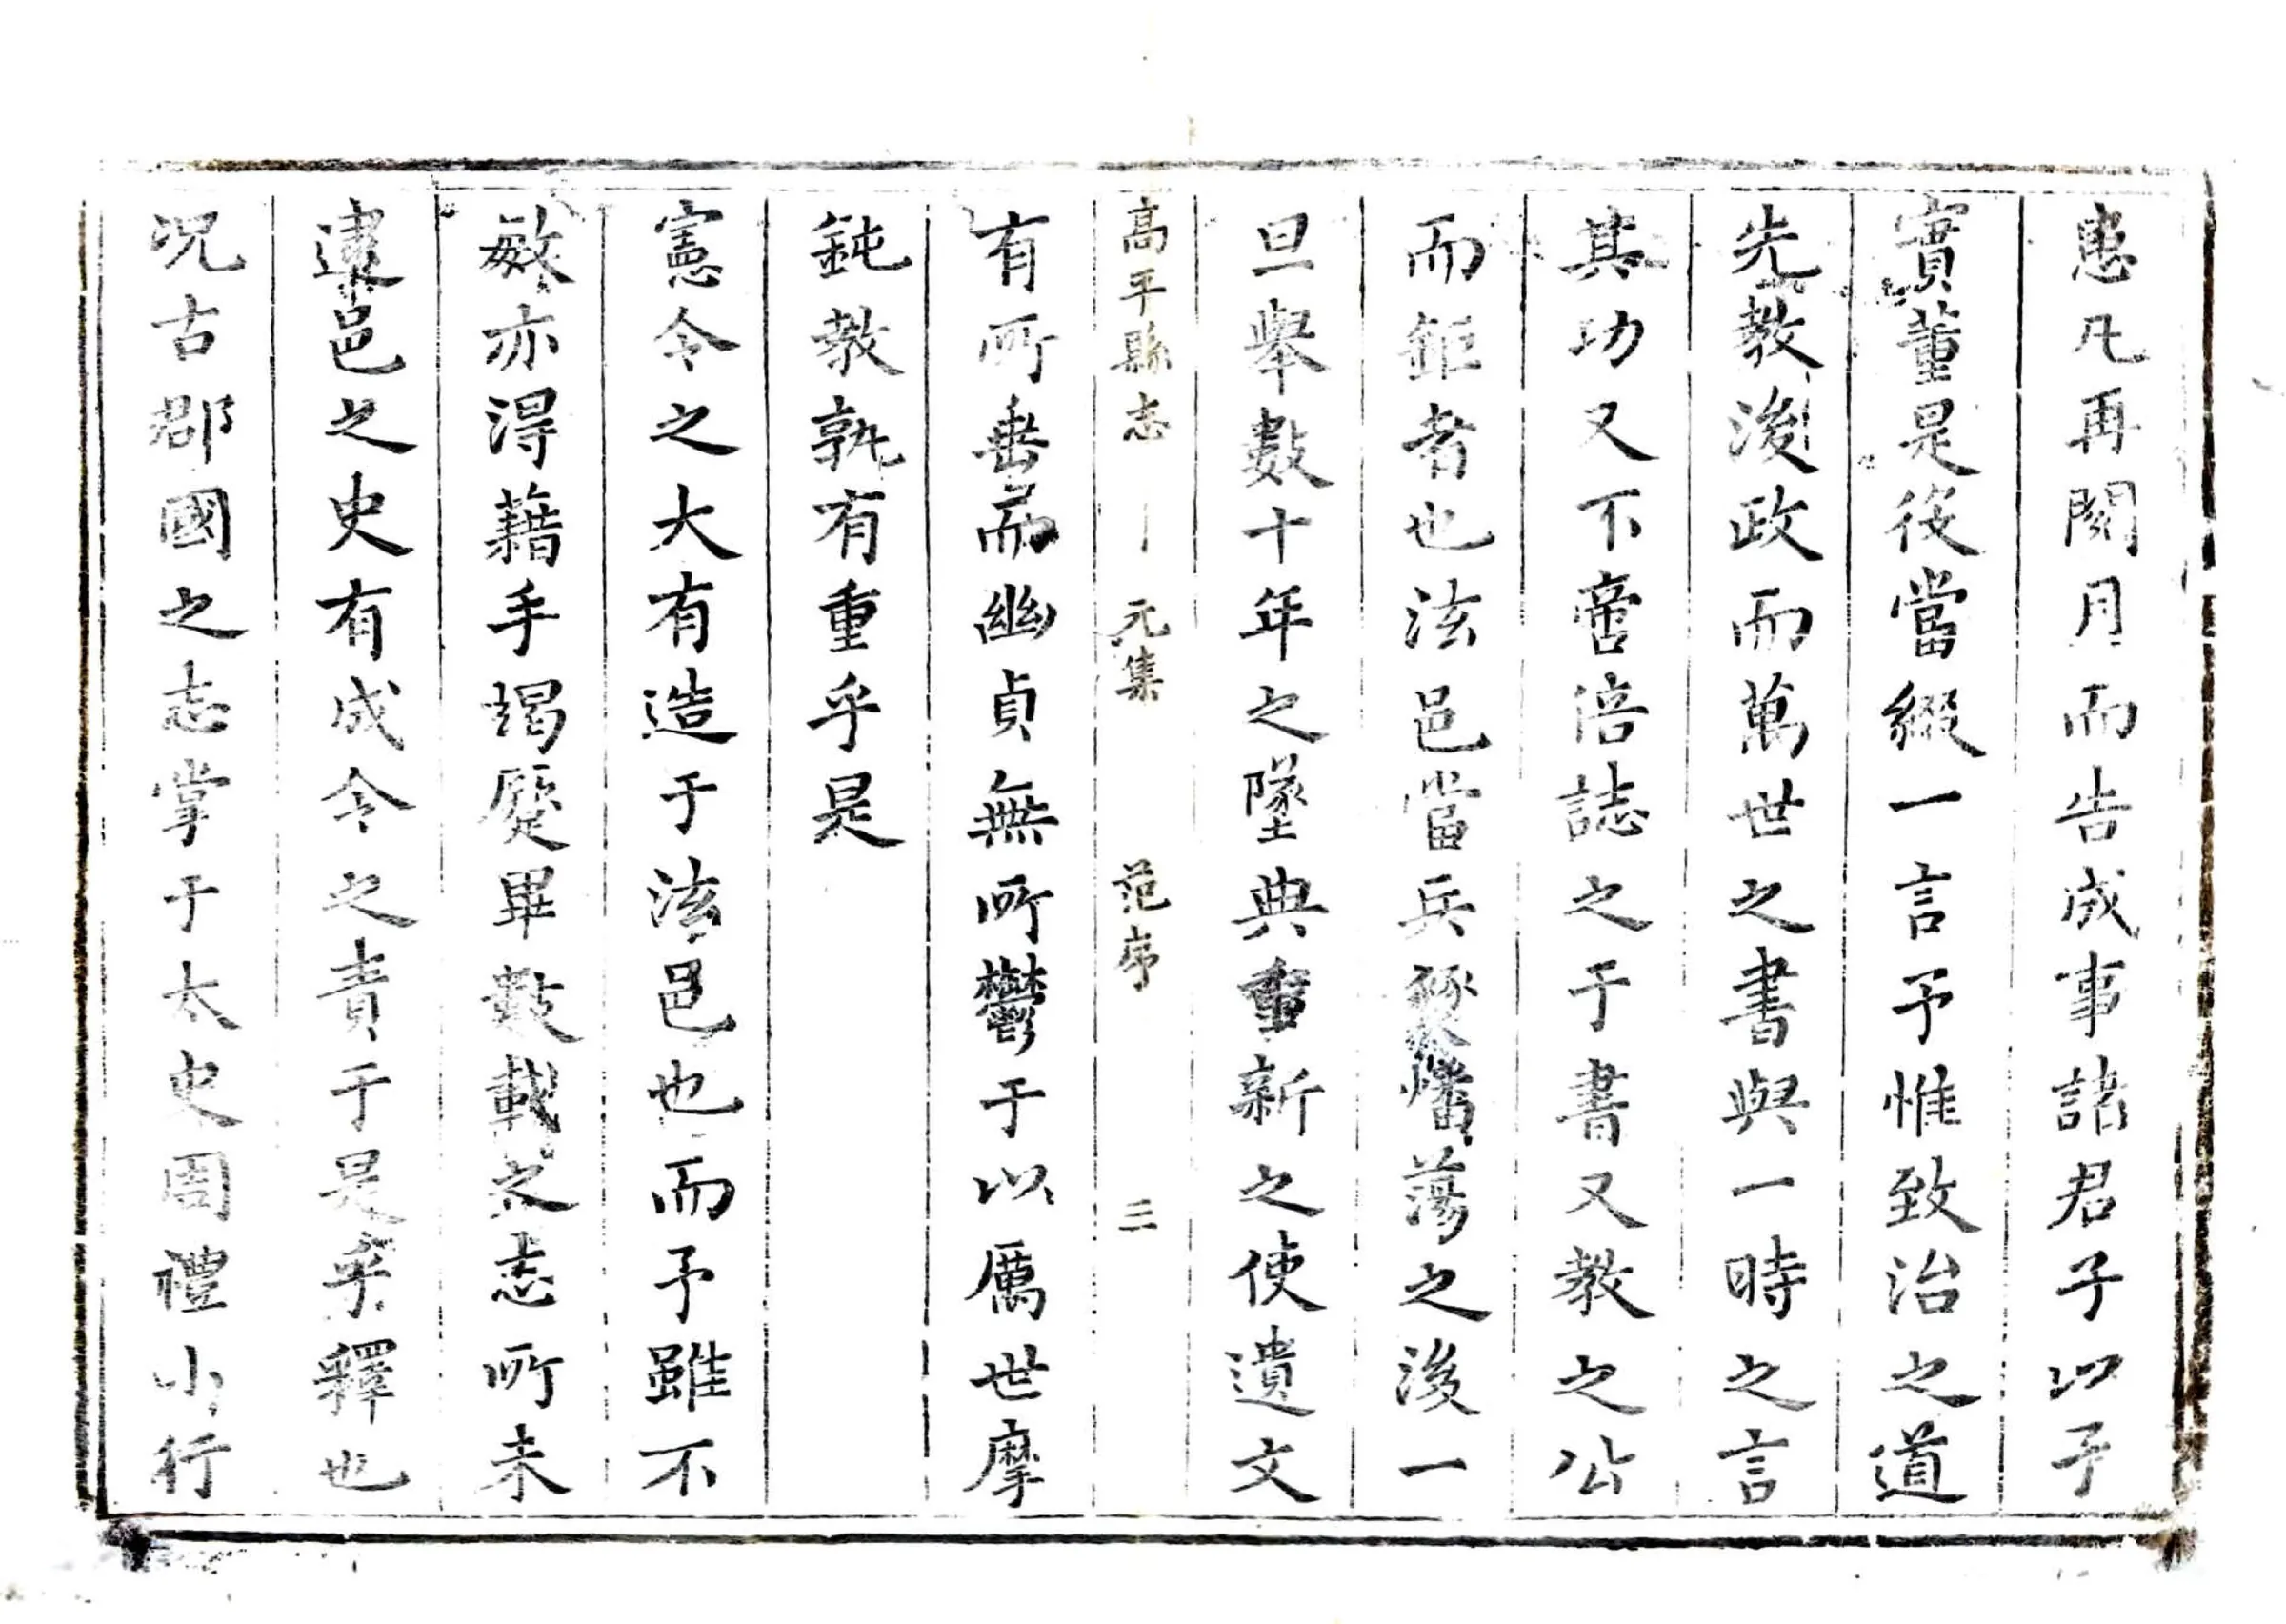 恵凡再閱月而告成事諸君子以予
實董是役當綴一言予惟致治之道
先教後政而萬世之書與一時之言
其功又不啻倍誌之于書又教之公
而鉅者也泫邑當兵燹燔蕩之後一
旦舉數十年之墜典重新之使遺文
高平縣志 元集 范序 三
有所垂而幽貞無所鬱于以厲世摩
鈍教孰有重乎是
憲令之大有造于泫邑也而予雖不
敏亦得藉手竭蹷畢數載之志所未
逮邑之史有成令之責于是乎釋也
况古郡國之志掌于太史周禮小行